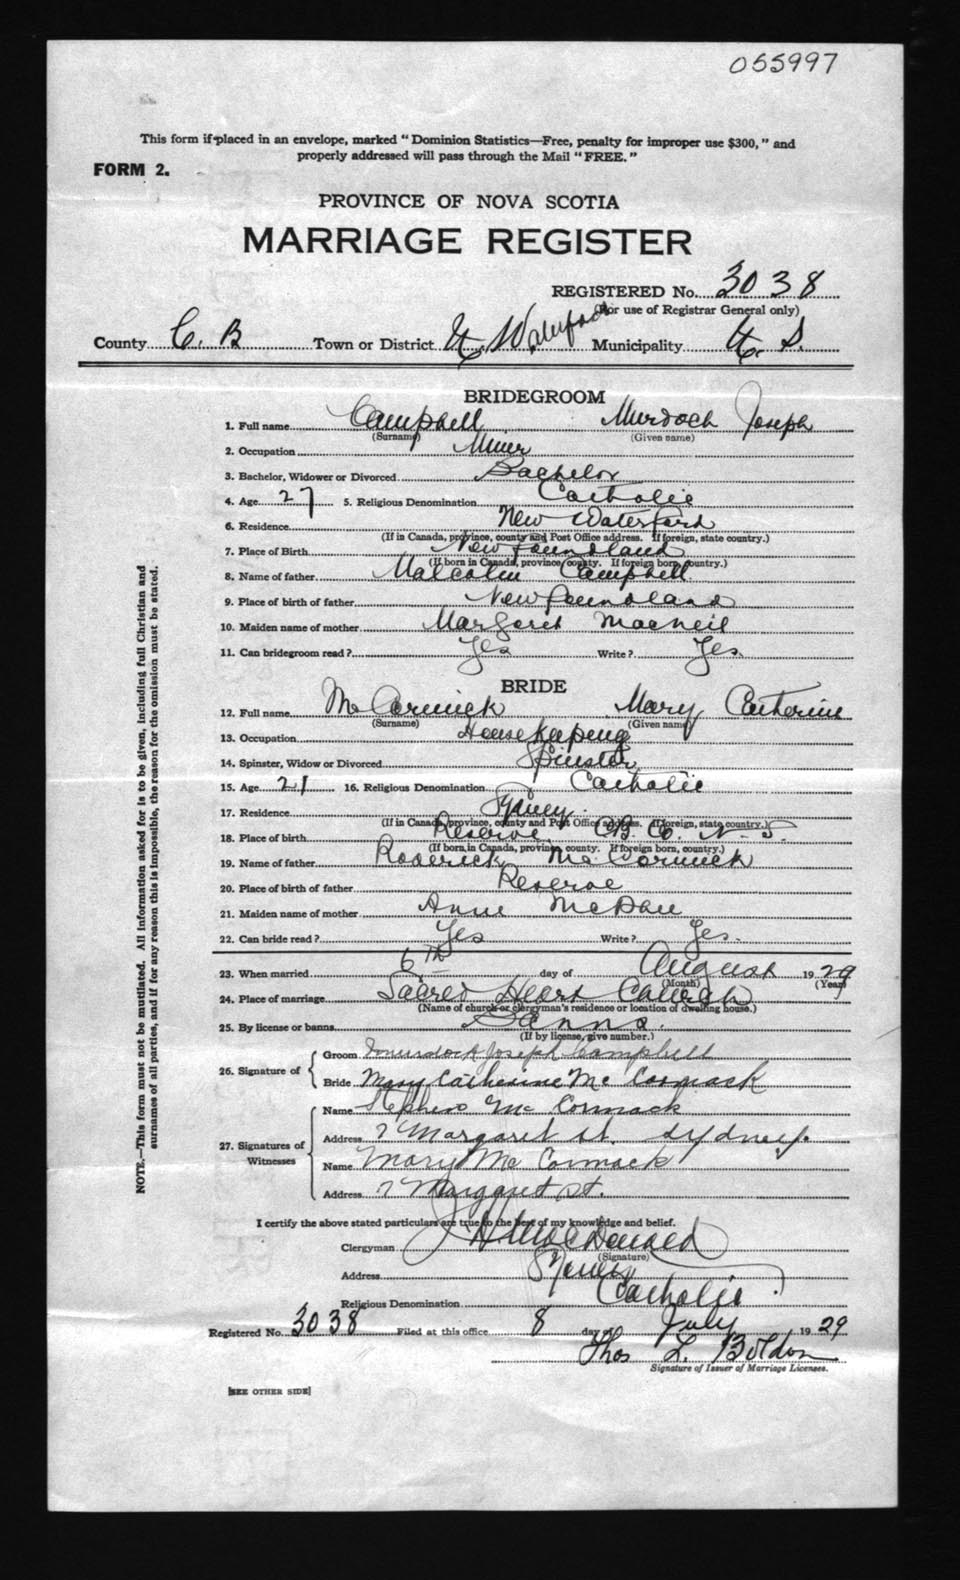 055997
This form if placed in an envelope, marked "Dominion Statistics—Free, penalty for improper use $300," and
properly addressed will pass through the Mail "FREE."
FORM 2.
PROVINCE OF NOVA SCOTIA
MARRIAGE REGISTER
REGISTERED No. 3038
(For use of Registrar General only)
County C. B Town or District Waterford Municipality
BRIDEGROOM
1. Full name Campbell Murdoch Joseph
(Surname) (Given name)
2. Occupation Miner
3. Bachelor, Widower or Divorced Bachelor
4. Age 27 5. Religious Denomination Catholic
6. Residence New Waterford
(If in Canada, province, county and Post Office address. If foreign, state country.)
7. Place of Birth Newfoundland
(If born in Canada, province, county. If foreign born, country.)
8. Name of father Malcolm Campbell
9. Place of birth of father Newfoundland
10. Maiden name of mother Margaret MacNeil
11. Can bridegroom read? Yes Write? Yes.
BRIDE
12. Full name McCormick Mary Catherine
(Surname) (Given name)
13. Occupation Housekeeping
14. Spinster, Widow or Divorced Spinster
15. Age 21 16. Religious Denomination Catholic
17. Residence Sydney.
(If in Canada, province, county and Post Office address. If foreign, state country.)
18. Place of birth Reserve, C.B. Co. N.S.
(If born in Canada, province, county. If foreign born, country.)
19. Name of father Roderick McCormick
20. Place of birth of father Reserve
21. Maiden name of mother Anne
22. Can bride read? Yes Write? Yes.
23. When married 6th day of August 1929
(Month) (Year)
24. Place of marriage Sacred Heart Church
(Name of church or clergyman's residence or location of dwelling house.)
25. By license or banns Banns.
(If by license, give number.)
26. Signature of Groom Murdock Joseph Campbell
Bride Mary Catherine McCormack
27. Signatures of Witnesses Name Stephen McCormack
Address 7 Margaret St. Sydney.
Name Mary McCormack
Address 7 Margaret St.
I certify the above stated particulars are true to the best of my knowledge and belief.
Clergyman MacDonald
(Signature)
Address Sydney
Religious Denomination Catholic
Registered No. 3038 Filed at this office 8 day of July 1929
Thos L.
Signature of Issuer of Marriage Licenses.
[SEE OTHER SIDE]
NOTE.—This form must not be mutilated. All information asked for is to be given, including full Christian and
surnames of all parties, and if for any reason this is impossible, the reason for the omission must be stated.